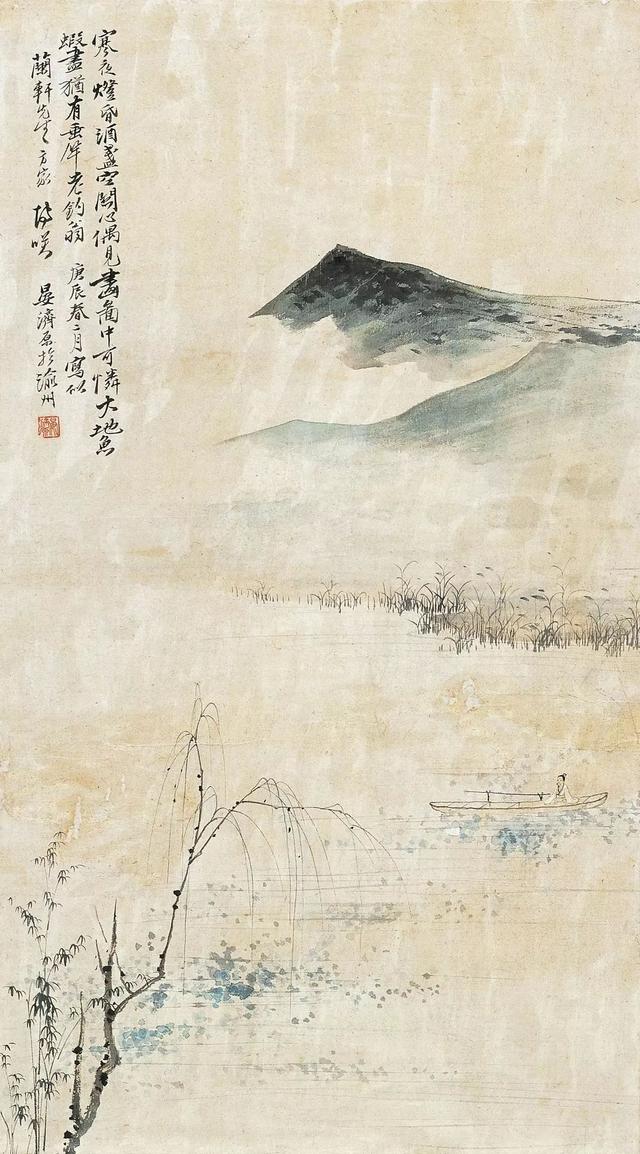 寒夜燈昏酒盞空關心偶見畫圖中可憐大地魚
蝦盡猶有垂竿老釣翁　庚辰春二月寫似
蘭軒先生方家　博咲　晏濟原於渝州